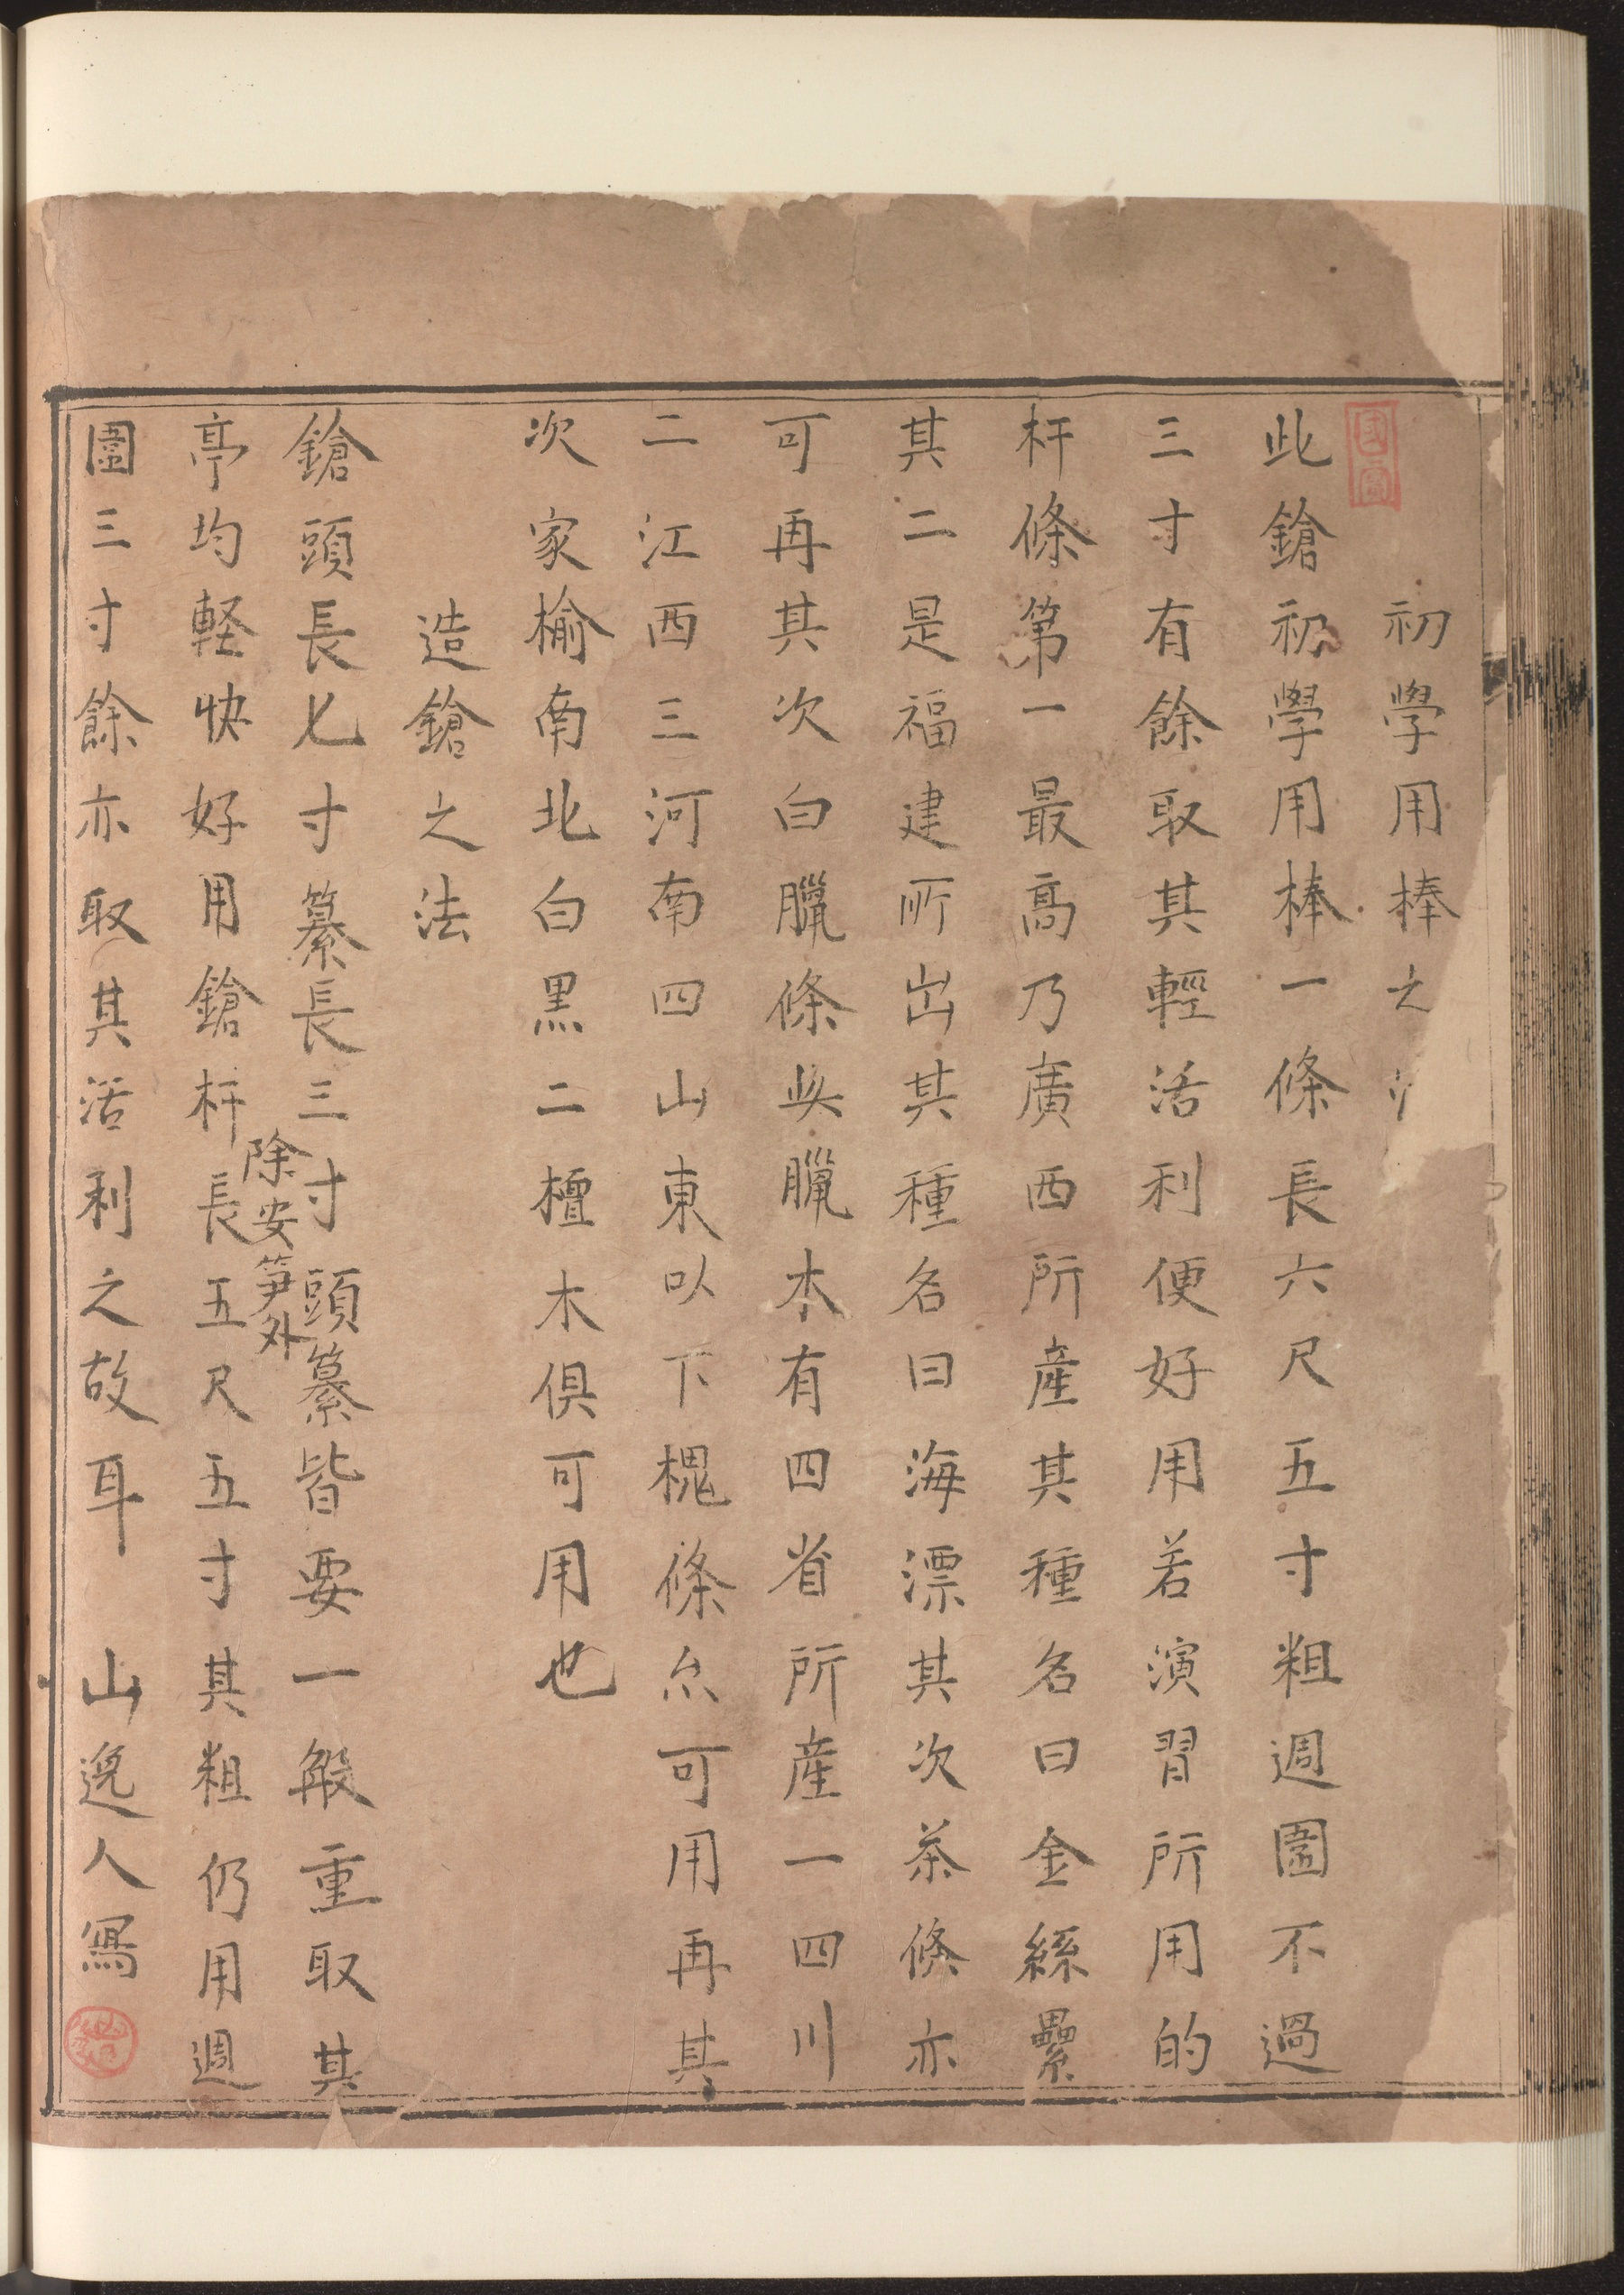 初學用棒之
此鎗初學用棒一條長六尺五寸粗週圍不過
三寸有餘取其輕活利便好用若演習所用的
杆條第一最高乃廣西所産其種名曰金絲纍
其二是福建所出其種名曰海漂其次茶條亦
可再其次白臘條此臘木有四省所産一四川
二江西三河南四山東以下槐條亦可用再其
次家榆南北白黑二檀木俱可用也
造鎗之法
鎗頭長七寸纂長三寸頭纂皆要一般重取其
亭均軽快好用鎗杆長五尺五寸其粗仍用週
除安笋外
圍三寸餘亦取其活利之故耳 山逸人寫